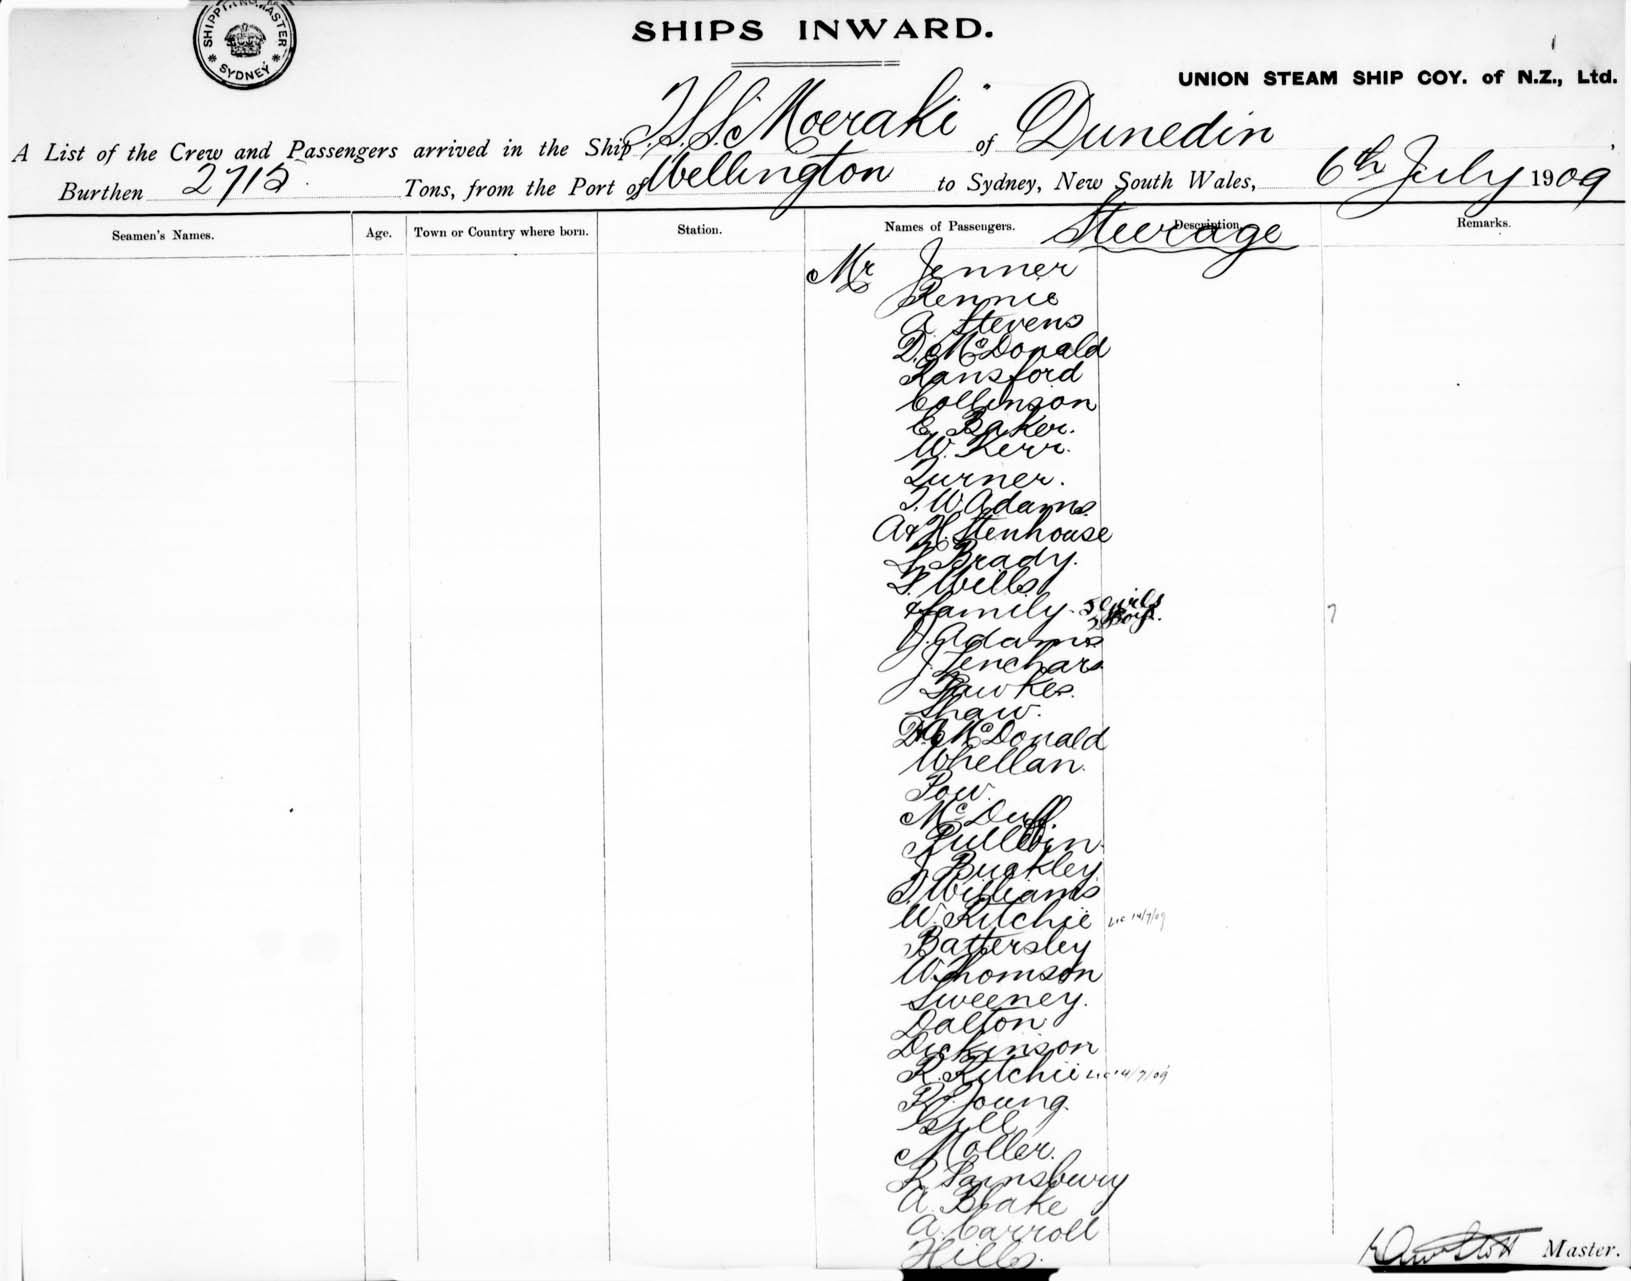 SHIPPING MASTER
* SYDNEY *
SHIPS INWARD.
UNION STEAM SHIP COY. of N.Z., Ltd.
A List of the Crew and Passengers arrived in the Ship T.S.S. Moeraki of Dunedin
Burthen 2715 Tons, from the Port of Wellington to Sydney, New South Wales, 6th July 1909
Seamen's Names. Age. Town or Country where born. Station. Names of Passengers. Description. Remarks.
Steerage
Mr Jenner
Rennie
A Stevens
D. McDonald
Ransford
Collinson
E Baker.
W. Kerr.
Turner.
T. W. Adams.
A & H. Stenhouse
L Brady.
T. Wills
& family. 5 Girls
2 Boys.
J. Adams
J.
Hawkes.
Shaw.
McDonald
Whellan.
Pow.
McDuff.
J Buckley
T. Williams
W. Ritchie Lic 14/7/09
Battersley
W. Thomson
Sweeney.
Dalton
Dickinson
R. Ritchie Lic 14/7/09
R. Young.
Moller.
Sainsbury
A. Blake
A. Carroll
Hills.
Master.